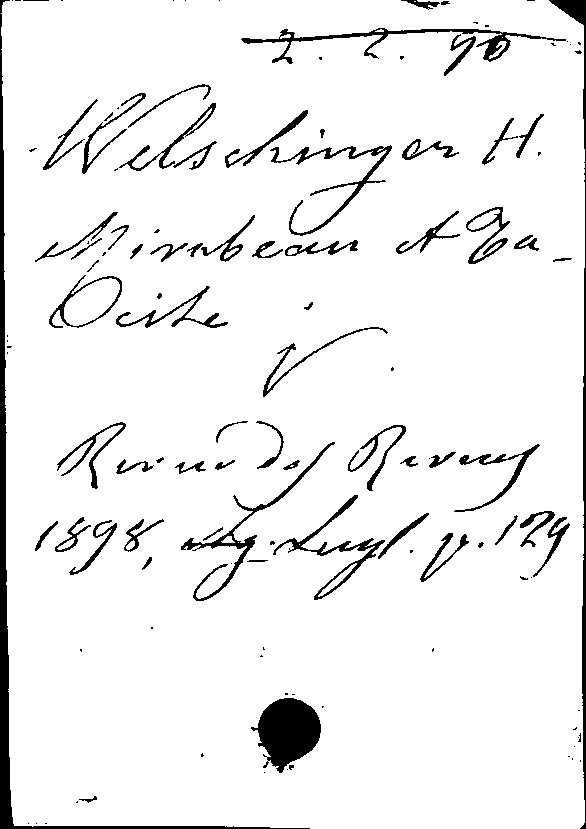 2. 2. 90
Welschinger H.
Mirabeau et Ta-
cite
Revue des Revues
1898, p. 129